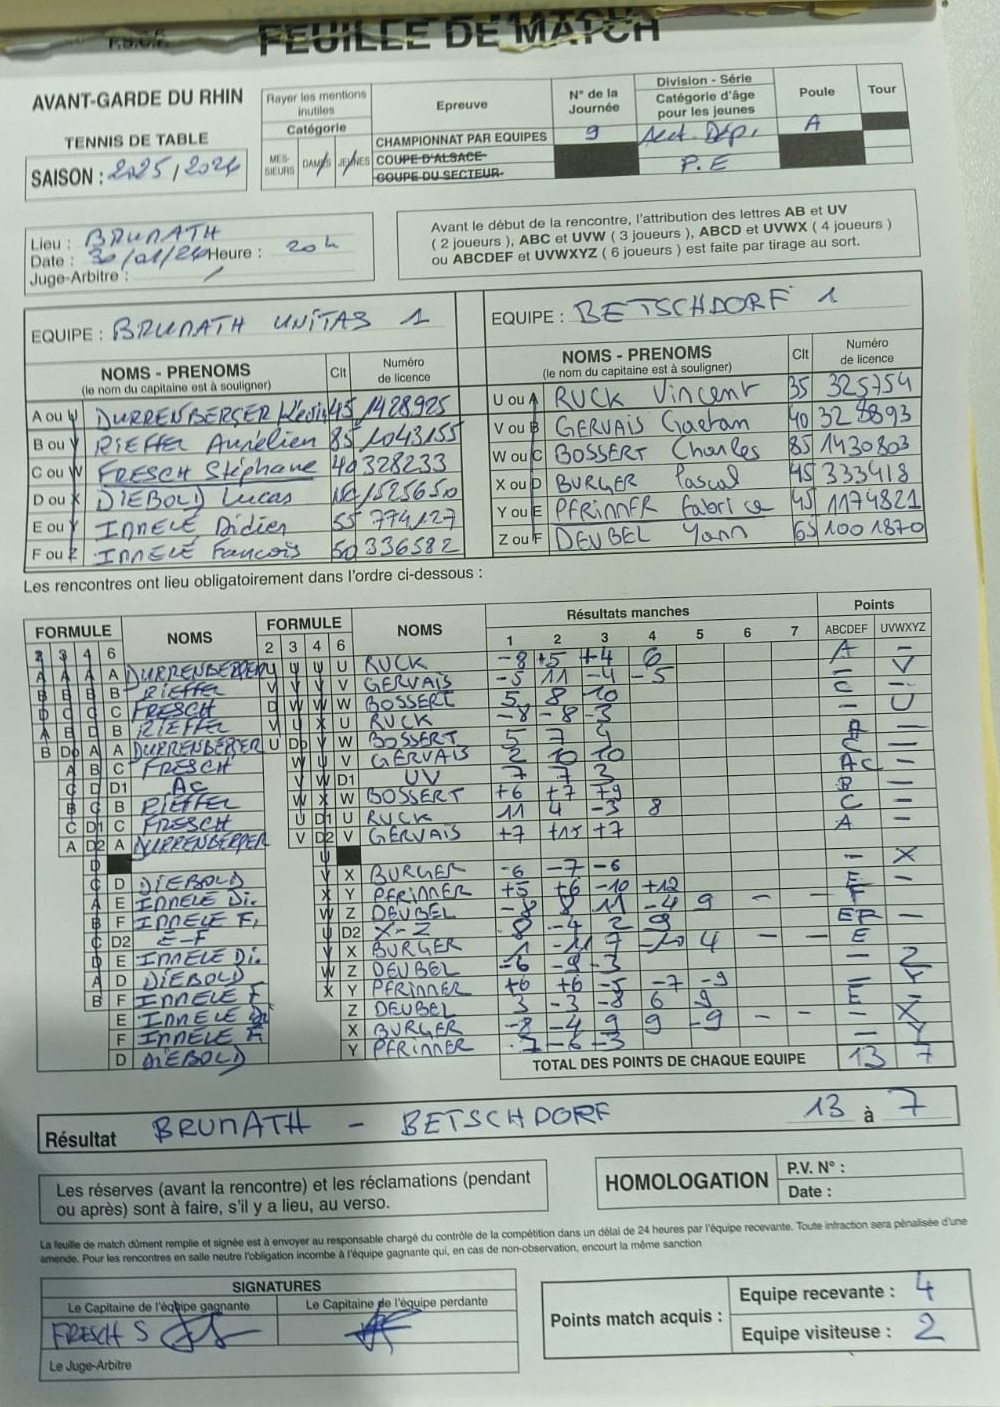 F.S.C.F. FEUILLE DE MATCH
AVANT-GARDE DU RHIN
TENNIS DE TABLE
SAISON : 2025/2026
Rayer les mentions inutiles
Catégorie
MES-SIEURS DAMES JEUNES
Epreuve
CHAMPIONNAT PAR EQUIPES
COUPE D'ALSACE
COUPE DU SECTEUR
N° de la Journée
9
Division - Série
Catégorie d'âge pour les jeunes
P.E
Poule
A
Tour
Lieu : BRUMATH
Date : 30/01/26 Heure : 20h
Juge-Arbitre : /
Avant le début de la rencontre, l'attribution des lettres AB et UV
( 2 joueurs ), ABC et UVW ( 3 joueurs ), ABCD et UVWX ( 4 joueurs )
ou ABCDEF et UVWXYZ ( 6 joueurs ) est faite par tirage au sort.
EQUIPE : BRUMATH UNITAS 1
NOMS - PRENOMS (le nom du capitaine est à souligner) Clt Numéro de licence
A ou U DURRENBERGER 45 1428925
B ou V RIEFFEL Aurélien 85 1043155
C ou W FRESCH Stéphane 40 328233
D ou X DIEBOLD Lucas 1525650
E ou Y IMMELE Didier 55 774127
F ou Z IMMELE Francois 50 336582
EQUIPE : BETSCHDORF 1
NOMS - PRENOMS (le nom du capitaine est à souligner) Clt Numéro de licence
U ou A RUCK Vincent 35 325754
V ou B GERVAIS Gaetan 40 328893
W ou C BOSSERT Charles 85 1430803
X ou D BURGER Pascal 45 333418
Y ou E PFRIMMER Fabrice 45 1174821
Z ou F DEUBEL Yann 65 1001870
Les rencontres ont lieu obligatoirement dans l'ordre ci-dessous :
FORMULE NOMS FORMULE NOMS Résultats manches Points
2 3 4 6 2 3 4 6 1 2 3 4 5 6 7 ABCDEF UVWXYZ
A A A A DURRENBERGER U U U U RUCK -8 +5 +4 6 A -
B B B B RIEFFEL V V V V GERVAIS -5 11 -4 -5 - V
D C C C FRESCH D W W W BOSSERT 5 8 10 C -
A B D B RIEFFEL V U X U RUCK -8 -8 -3 - U
B Do A A DURRENBERGER U Do V W BOSSERT 5 7 9 A -
A B C FRESCH W U V GERVAIS 2 10 10 C -
C D D1 AC V W D1 UV 7 7 3 AC -
B C B RIEFFEL W X W BOSSERT +6 +7 +9 B -
C D1 C FRESCH U D1 U RUCK 11 4 -3 8 C -
A D2 A DURRENBERGER V D2 V GERVAIS +7 +15 +7 A -
D U
C D DIEBOLD V X BURGER -6 -7 -6 - X
A E IMMELE Di. X Y PFRIMMER +5 +6 -10 +12 E -
B F IMMELE F. W Z DEUBEL -8 8 11 -4 9 - - F
C D2 E-F U D2 X-Z 8 -4 2 9 EF -
D E IMMELE Di. V X BURGER 1 -11 9 -10 4 - - E
A D DIEBOLD W Z DEUBEL -6 -9 -3 - Z
B F IMMELE F X Y PFRIMMER +6 +6 -5 -7 -9 - Y
E IMMELE Di Z DEUBEL 3 -3 -8 6 9 E -
F IMMELE F. X BURGER -8 -4 9 9 -9 - - - X
D DIEBOLD Y PFRIMMER -7 -6 -3 - Y
TOTAL DES POINTS DE CHAQUE EQUIPE 13 7
Résultat BRUMATH - BETSCHDORF 13 à 7
Les réserves (avant la rencontre) et les réclamations (pendant
ou après) sont à faire, s'il y a lieu, au verso.
HOMOLOGATION
P.V. N° :
Date :
La feuille de match dûment remplie et signée est à envoyer au responsable chargé du contrôle de la compétition dans un délai de 24 heures par l'équipe recevante. Toute infraction sera pénalisée d'une
amende. Pour les rencontres en salle neutre l'obligation incombe à l'équipe gagnante qui, en cas de non-observation, encourt la même sanction
SIGNATURES
Le Capitaine de l'équipe gagnante Le Capitaine de l'équipe perdante
FRESCH S
Le Juge-Arbitre
Points match acquis :
Equipe recevante : 4
Equipe visiteuse : 2